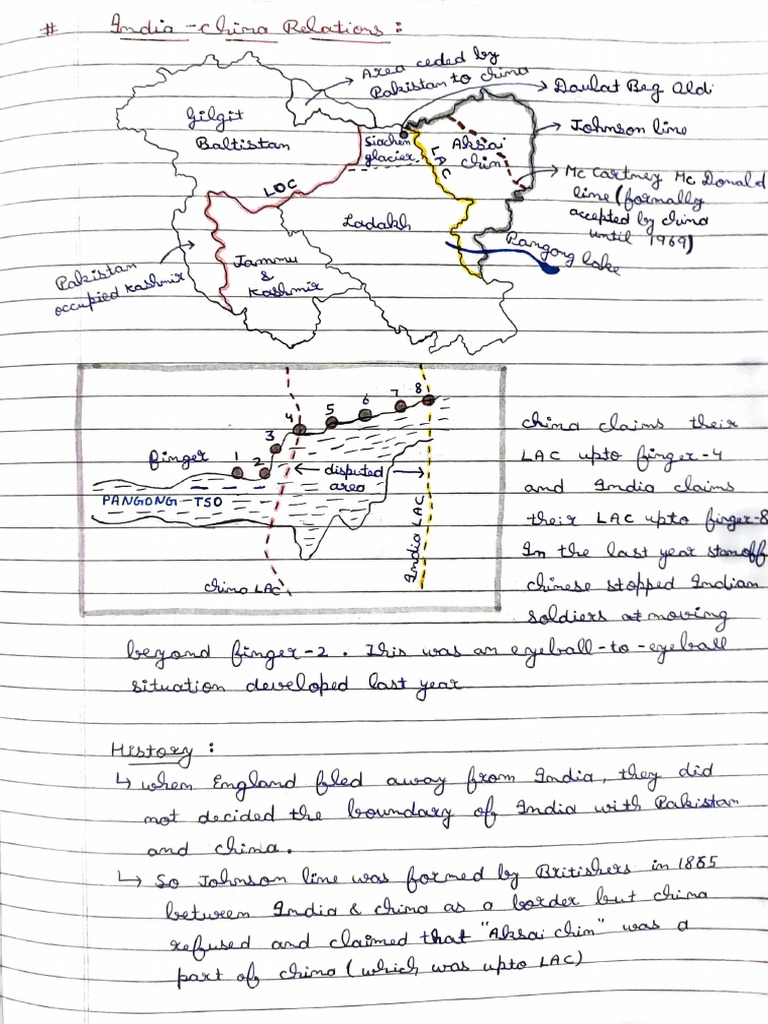 # India - China Relations :
Area ceded by
Pakistan to china
Daulat Beg Oldi
Gilgit
Baltistan
Siachen
glacier
Aksai
chin
Johnson line
LAC
LOC
Mc Cartney Mc Donald
line (formally
accepted by china
until 1969)
Ladakh
Pangong lake
Pakistan
occupied Kashmir
Jammu
&
Kashmir
1 2 3 4 5 6 7 8
finger
disputed
area
PANGONG-TSO
India LAC
china LAC
china claims their
LAC upto finger-4
and India claims
their LAC upto finger-8
In the last year standoff
chinese stopped Indian
soldiers at moving
beyond finger-2. This was an eyeball-to-eyeball
situation developed last year
History :
↳ when England fled away from India, they did
not decided the boundary of India with Pakistan
and china.
↳ So Johnson line was formed by Britishers in 1865
between India & china as a border but china
refused and claimed that "Aksai chin" was a
part of china (which was upto LAC)